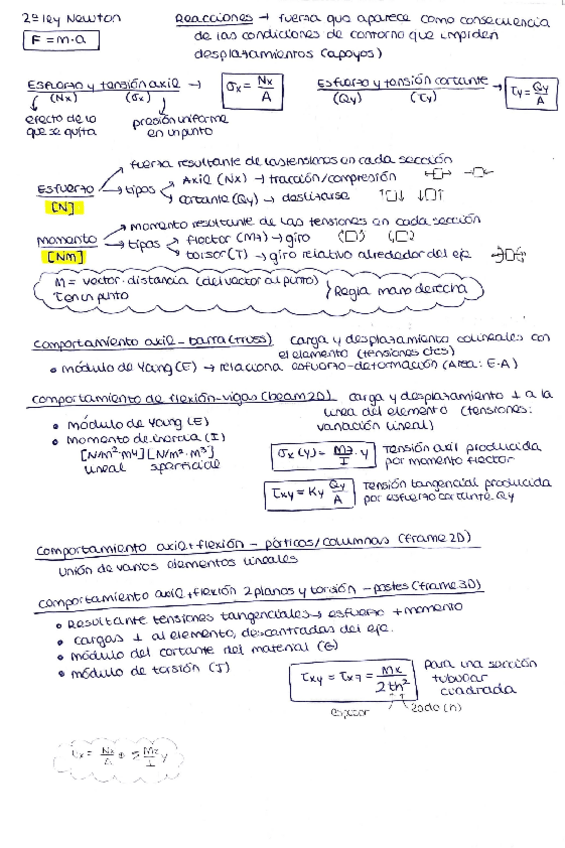 2ª ley Newton
F = m·a
Reacciones → fuerza que aparece como consecuencia
de las condiciones de contorno que impiden
desplazamientos (apoyos)
Esfuerzo y tensión axil →
(Nx) (σx)
σx = Nx/A
efecto de lo
que se quita
presión uniforme
en un punto
Esfuerzo y tensión cortante →
(Qy) (τy)
τy = Qy/A
fuerza resultante de las tensiones en cada sección
Esfuerzo → tipos
[N]
Axil (Nx) → tracción/compresión
cortante (Qy) → deslizarse
momento resultante de las tensiones en cada sección
Momento → tipos
[Nm]
flector (Mz) → giro
torsor (T) → giro relativo alrededor del eje
M = vector · distancia (del vector al punto)
en un punto
Regla mano derecha
comportamiento axil - barra (truss)
carga y desplazamiento colineales con
el elemento (tensiones ctes)
• módulo de Young (E) → relaciona esfuerzo-deformación (Area: E·A)
comportamiento de flexión - vigas (beam 2D)
carga y desplazamiento ⊥ a la
linea del elemento (tensiones:
variación lineal)
• módulo de Young (E)
• Momento de inercia (I)
[N/m²·m⁴] [N/m²·m³]
lineal superficial
σx(y) = Mz/I · y
Tensión axil producida
por momento flector
τxy = Ky Qy/A
Tensión tangencial producida
por esfuerzo cortante Qy
comportamiento axil + flexión - pórticos/columnas (frame 2D)
Unión de varios elementos lineales
comportamiento axil + flexión 2 planos y torsión - postes (frame 3D)
• Resultante tensiones tangenciales → esfuerzo + momento
• cargas ⊥ al elemento, descentradas del eje.
• módulo del cortante del material (G)
• módulo de torsión (J)
τxy = τxz = Mx/2th²
Para una sección
tubular
cuadrada
espesor
lado (h)